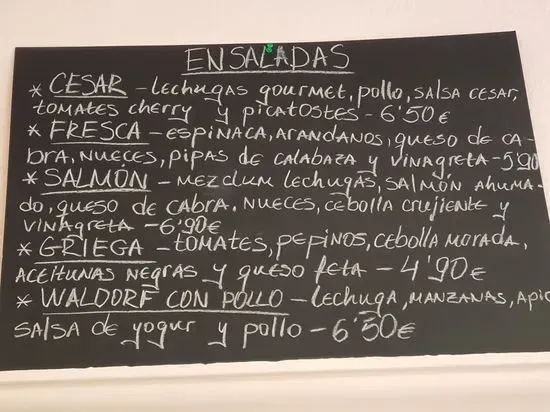 ENSALADAS
* CESAR - LECHUGAS GOURMET, POLLO, SALSA CESAR,
TOMATES CHERRY Y PICATOSTES - 6'50€
* FRESCA - ESPINACA, ARANDANOS, QUESO DE CA-
BRA, NUECES, PIPAS DE CALABAZA Y VINAGRETA - 5'90
* SALMÓN - MEZCLUM LECHUGAS, SALMÓN AHUMA-
DO, QUESO DE CABRA, NUECES, CEBOLLA CRUJIENTE Y
VINAGRETA - 6'90€
* GRIEGA - TOMATES, PEPINOS, CEBOLLA MORADA,
ACEITUNAS NEGRAS Y QUESO FETA - 4'90€
* WALDORF CON POLLO - LECHUGA, MANZANAS, APIO
SALSA DE YOGUR Y POLLO - 6'50€